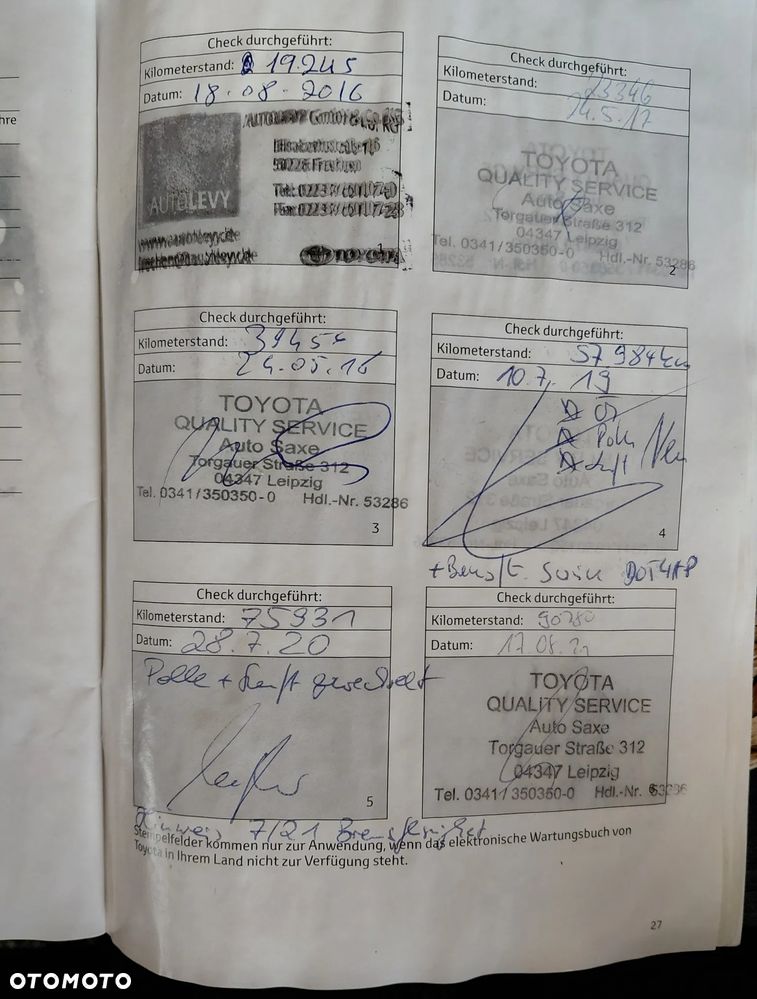 hre
Check durchgeführt:
Kilometerstand: 19.245
Datum: 18.08.2016
AUTOLEVY GmbH & Co. KG
AUTOLEVY
Toyota
1
Check durchgeführt:
Kilometerstand:
Datum: 14.5.17
TOYOTA
QUALITY SERVICE
Auto Saxe
Torgauer Straße 312
04347 Leipzig
Tel. 0341/350350-0 Hdl.-Nr. 53286
2
Check durchgeführt:
Kilometerstand:
Datum: 24.05.18
TOYOTA
QUALITY SERVICE
Auto Saxe
Torgauer Straße 312
04347 Leipzig
Tel. 0341/350350-0 Hdl.-Nr. 53286
3
Check durchgeführt:
Kilometerstand: 57984km
Datum: 10.7.19
Öl
Pollen
Luft
4
DOT4
Check durchgeführt:
Kilometerstand: 75931
Datum: 28.7.20
Polle + Luft gewechselt
5
Hinweis 7/21 Bremsflüssigkeit
Check durchgeführt:
Kilometerstand: 90780
Datum: 17.08.21
TOYOTA
QUALITY SERVICE
Auto Saxe
Torgauer Straße 312
04347 Leipzig
Tel. 0341/350350-0 Hdl.-Nr. 53286
6
Stempelfelder kommen nur zur Anwendung, wenn das elektronische Wartungsbuch von
Toyota in Ihrem Land nicht zur Verfügung steht.
27
OTOMOTO